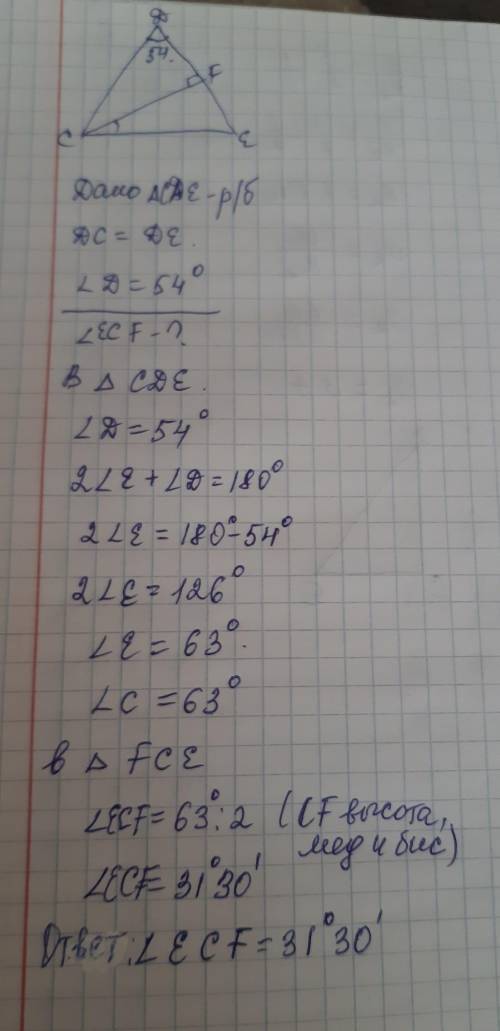 D
54.
F
C
E
Дано △CDE-р/б
DC = DE.
∠D = 54°
∠ECF-?
В △ CDE.
∠D = 54°
2∠E + ∠D = 180°
2∠E = 180°-54°
2∠E = 126°
∠E = 63°.
∠C = 63°
В △ FCE
∠ECF = 63°:2 (CF высота,
мед и бис)
∠ECF = 31°30'
Ответ: ∠ECF = 31°30'